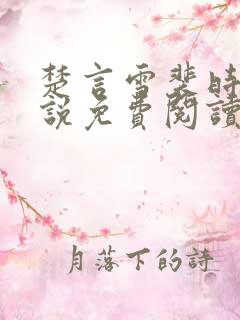 楚言雪裴時
說免費閱讀
月落下的詩